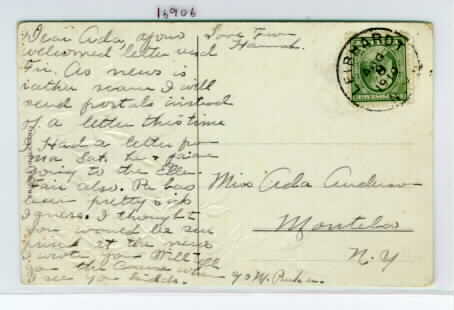 15906
Dear Ada, yours
welcomed letter rec'd
Fri. As news is
rather scarce I will
send postals instead
of a letter this time
I Had a letter from
Ma Sat. he & are
going to the Ellen.
Fair also. Pa has
been pretty sick
I guess. I thought
you would be sur
prised at the news
I wrote you Will tell
you the Course when
I see you
Love from
Hannah.
EIRHARDT
AUG
8
Miss Ada Anderson
Montela
N. Y